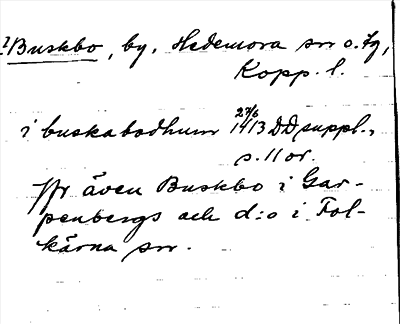 ?Buskbo, by, Hedemora sn o. tg,
Kopp. l.
i buskabodhum 27/6 1413 DD suppl.,
s. 11 or.
Jfr även Buskbo i Gar-
penbergs och d:o i Fol-
kärna sn.